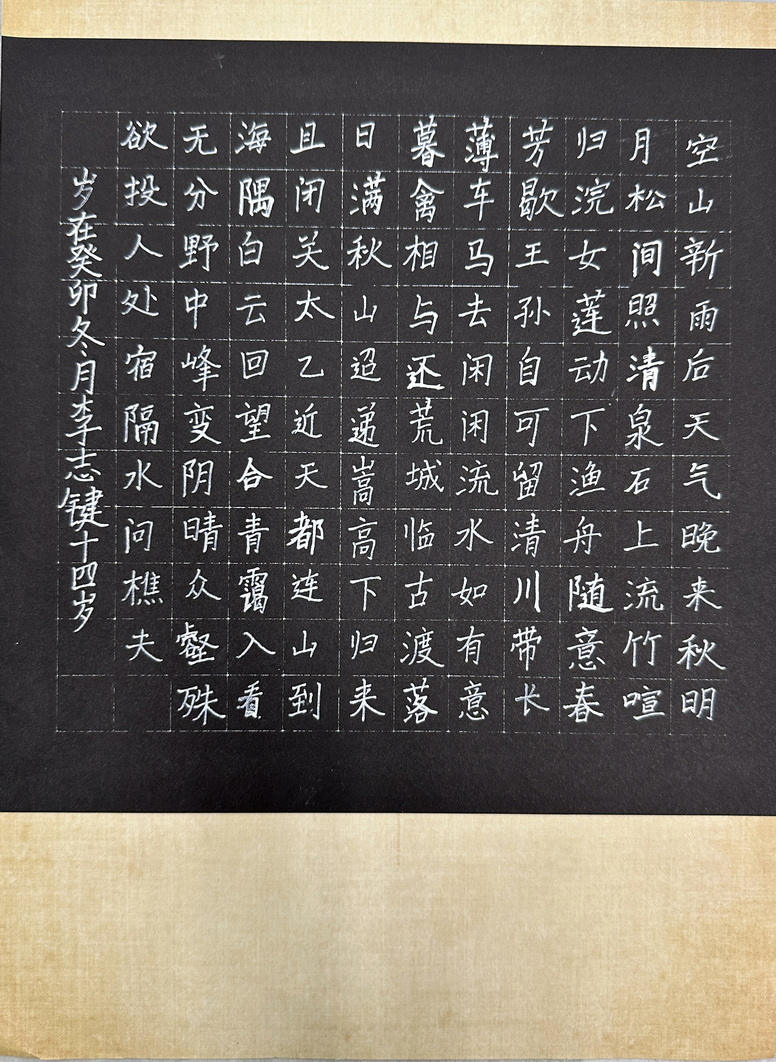 空山新雨后天气晚来秋明
月松间照清泉石上流竹喧
归浣女莲动下渔舟随意春
芳歇王孙自可留清川带长
薄车马去闲闲流水如有意
暮禽相与还荒城临古渡落
日满秋山迢递嵩高下归来
且闭关太乙近天都连山到
海隅白云回望合青霭入看
无分野中峰变阴晴众壑殊
欲投人处宿隔水问樵夫
岁在癸卯冬月李志键十四岁